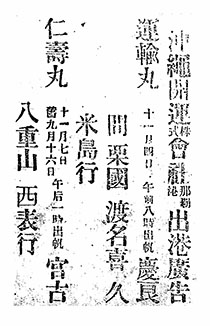 沖繩開運株式會社那覇港出港廣告
運輸丸
十一月四日午前八時出帆
慶良
間 粟國 渡名喜 久
米島行
仁壽丸
十一月七日
舊九月十六日
午后一時出帆
宮古
八重山 西表行